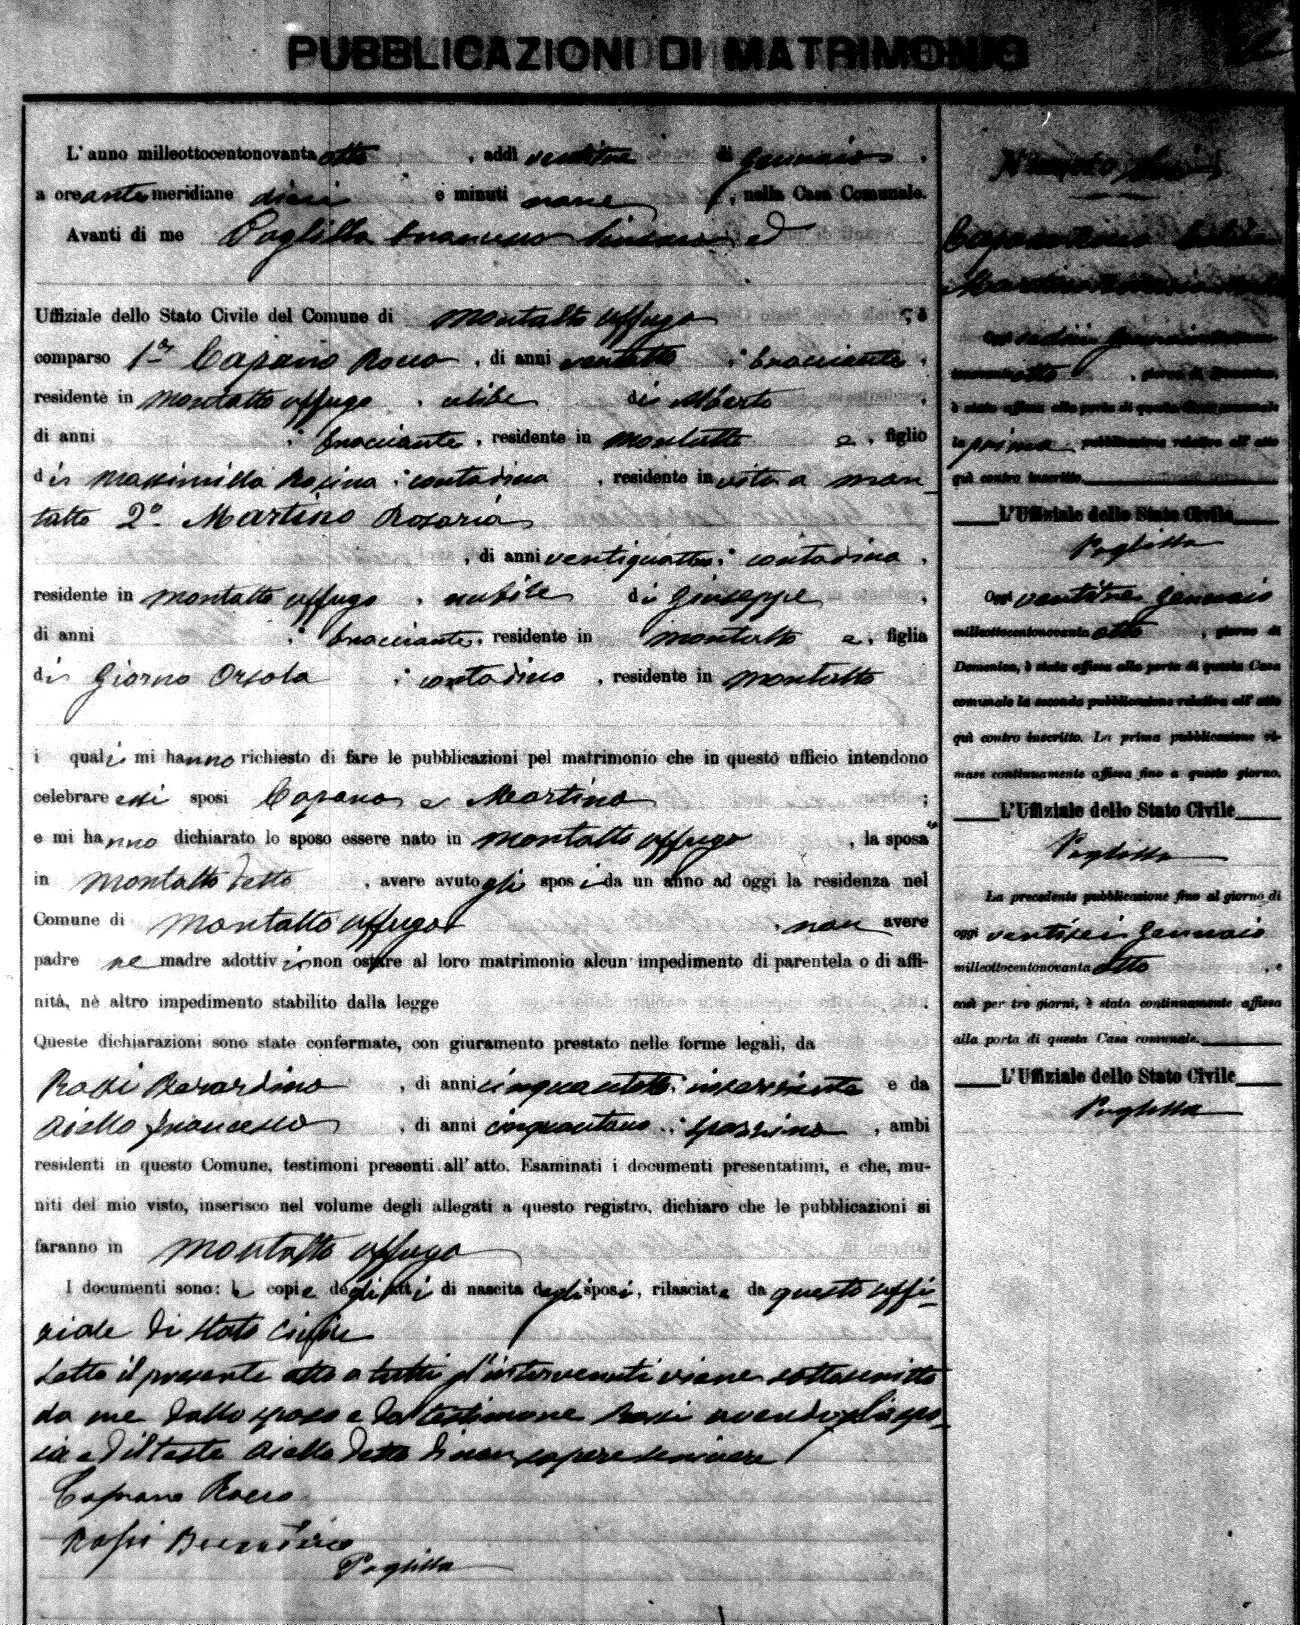 PUBBLICAZIONI DI MATRIMONIO
L'anno milleottocentonovanta otto , addì ventitre di Gennaio ,
a ore anti meridiane dieci e minuti nove , nella Casa Comunale.
Avanti di me Paglilla Francesco Sindaco ed
Uffiziale dello Stato Civile del Comune di Montalto Uffugo , è
comparso 1° Capano Rocco , di anni ventotto , bracciante ,
residente in Montalto Uffugo , celibe di Alberto ,
di anni , bracciante , residente in Montalto e , figlio
di Massimilla Rosina , contadina , residente in vita a Mon-
talto 2° Martino Rosaria
, di anni ventiquattro , contadina ,
residente in Montalto Uffugo , nubile di Giuseppe ,
di anni , bracciante , residente in Montalto e , figlia
di Giorno Orsola , contadina , residente in Montalto
i quali mi hanno richiesto di fare le pubblicazioni pel matrimonio che in questo ufficio intendono
celebrare essi sposi Capano e Martino ;
e mi hanno dichiarato lo sposo essere nato in Montalto Uffugo , la sposa
in Montalto detto , avere avuto gli sposi da un anno ad oggi la residenza nel
Comune di Montalto Uffugo , non avere
padre ne madre adottivi non ostare al loro matrimonio alcun impedimento di parentela o di affi-
nità, nè altro impedimento stabilito dalla legge .
Queste dichiarazioni sono state confermate, con giuramento prestato nelle forme legali, da
Rossi Berardino , di anni cinquantotto , inserviente e da
Aiello Francesco , di anni cinquantuno , spazzino , ambi
residenti in questo Comune, testimoni presenti all'atto. Esaminati i documenti presentatimi, e che, mu-
niti del mio visto, inserisco nel volume degli allegati a questo registro, dichiaro che le pubblicazioni si
faranno in Montalto Uffugo
I documenti sono: le copie degli atti di nascita degli sposi, rilasciate da questo uffi-
ziale di stato civile
Letto il presente atto a tutti gl'intervenuti viene sottoscritto
da me dallo sposo e dal testimone Rossi avendo la spo-
sa ed il teste Aiello detto di non sapere scrivere
Capano Rocco
Rossi Berardino
Paglilla
Numero
Capano Rocco
Martino Rosaria
Oggi sedici Gennaio
otto , giorno di Domenica,
è stata affissa alla porta di questa Casa comunale
la prima pubblicazione relativa all'atto
quì contro inscritto.
L'Uffiziale dello Stato Civile
Paglilla
Oggi ventitre Gennaio
milleottocentonovanta otto , giorno di
Domenica, è stata affissa alla porta di questa Casa
comunale la seconda pubblicazione relativa all'atto
quì contro inscritto. La prima pubblicazione ri-
mase continuamente affissa fino a questo giorno.
L'Uffiziale dello Stato Civile
Paglilla
La precedente pubblicazione fino al giorno di
oggi ventisei Gennaio
milleottocentonovanta otto , e
così per tre giorni, è stata continuamente affissa
alla porta di questa Casa comunale.
L'Uffiziale dello Stato Civile
Paglilla